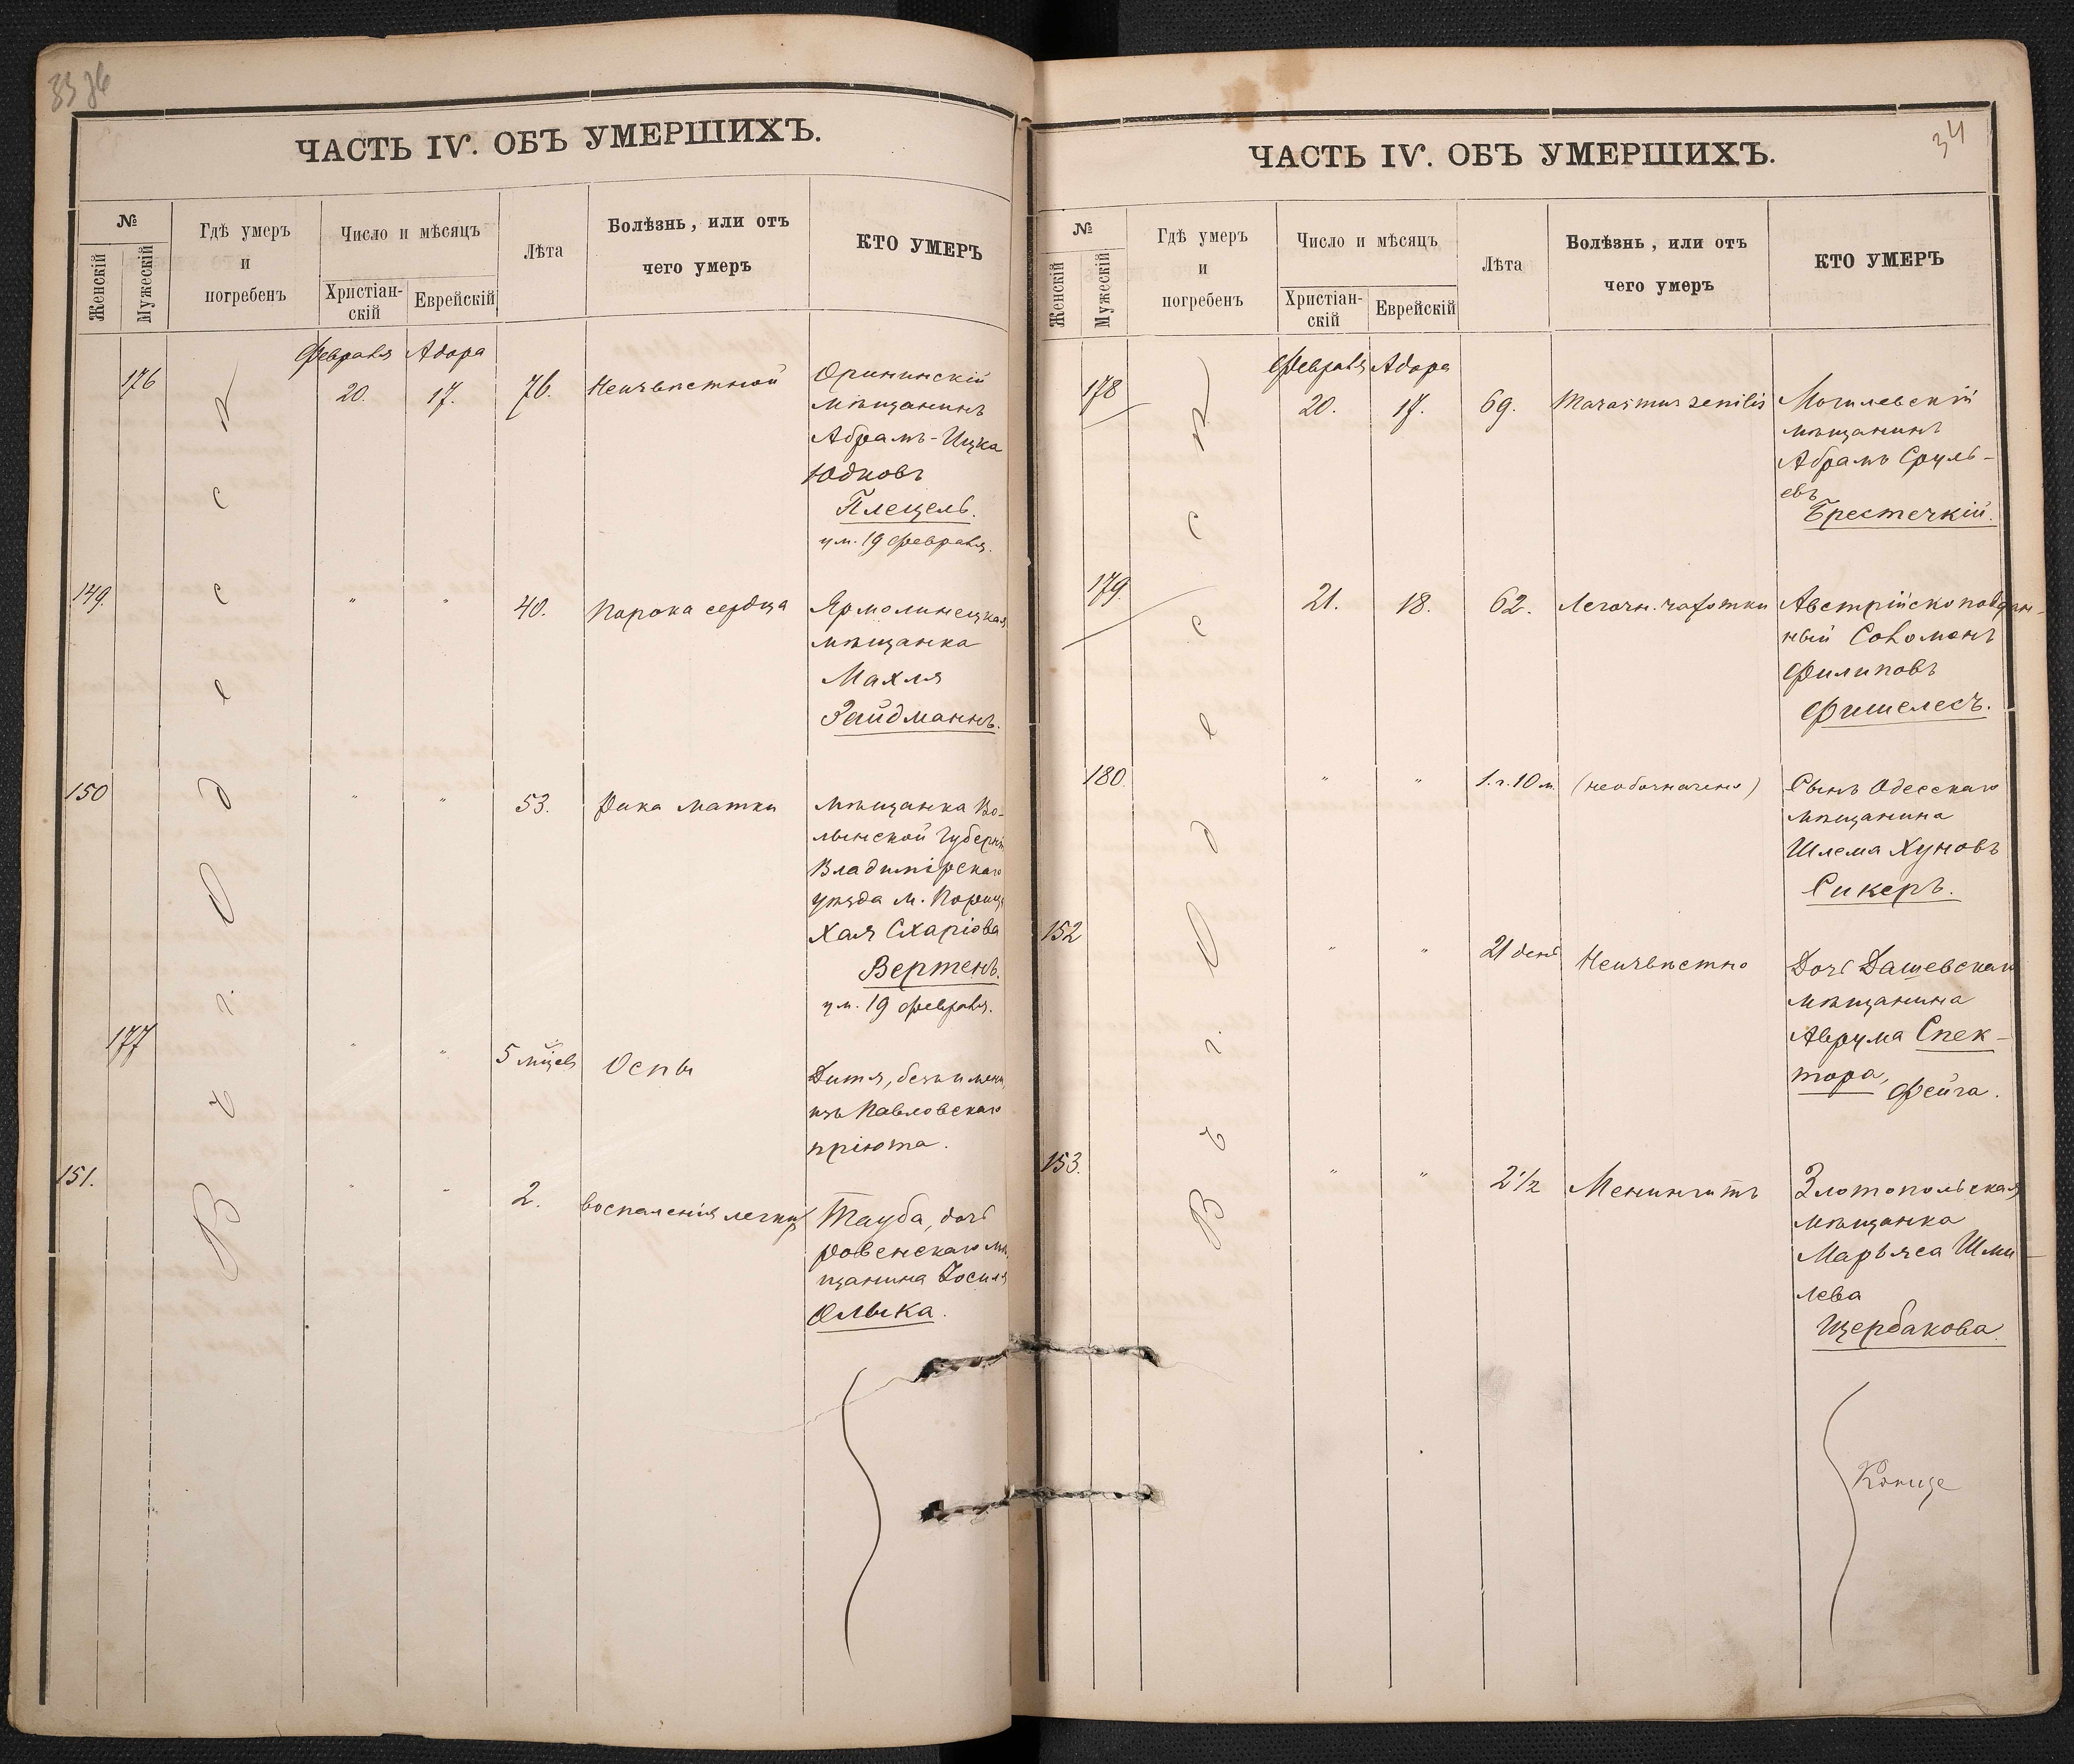 ЧАСТЬ IV. ОБЪ УМЕРШИХЪ.
№
Женскій
Мужескій
Гдѣ умеръ
и
погребенъ
Число и мѣсяцъ
Христіан-
скій
Еврейскій
Лѣта
Болѣзнь, или отъ
чего умеръ
КТО УМЕРЪ
Февраля Адора
176 20. 17. 76. Неизвѣстной Орининскій
мѣщанинъ
Абрамъ-Ицка
Юдковъ
Плецель.
ум. 19 февраля.
149. " " 40. Порока сердца Ярмолинецкая
мѣщанка
Махля
Зайдманнъ.
150 " " 53. Рака матки мѣщанка Во-
лынской Губерніи
Владимірскаго
уѣзда м. Порицк
Хая Схаріова
Вертенъ.
ум. 19 февраля.
177 " " 5 мѣцевъ Оспы Дитя, безъ имени,
изъ Павловскаго
пріюта.
151. " " 2. воспаленія легкихъ Тауба, дочь
Ровенскаго мѣ-
щанина Іосиля
Олыка.
Въ г. Одессѣ
ЧАСТЬ IV. ОБЪ УМЕРШИХЪ.
34
№
Женскій
Мужескій
Гдѣ умеръ
и
погребенъ
Число и мѣсяцъ
Христіан-
скій
Еврейскій
Лѣта
Болѣзнь, или отъ
чего умеръ
КТО УМЕРЪ
Февраля Адора
178 20. 17. 69. Marasmus senilis Могилевскій
мѣщанинъ
Абрамъ Сруль-
евъ
Брестечкій.
179. 21. 18. 62. Легочн. чахотки Австрійскоподдан-
ный Соломонъ
Филиповъ
Фишелесъ.
180. " " 1. г. 10 м. (необозначено) Сынъ Одесскаго
мѣщанина
Шлема Хуновъ
Сикеръ.
152 " " 21 день Неизвѣстно Дочь Дашевскаго
мѣщанина
Аврума Спек-
тора, Фейга.
153. " " 2 1/2 Менингитъ Златопольская
мѣщанка
Марьяса Шми-
лева
Щербакова.
Въ г. Одессѣ